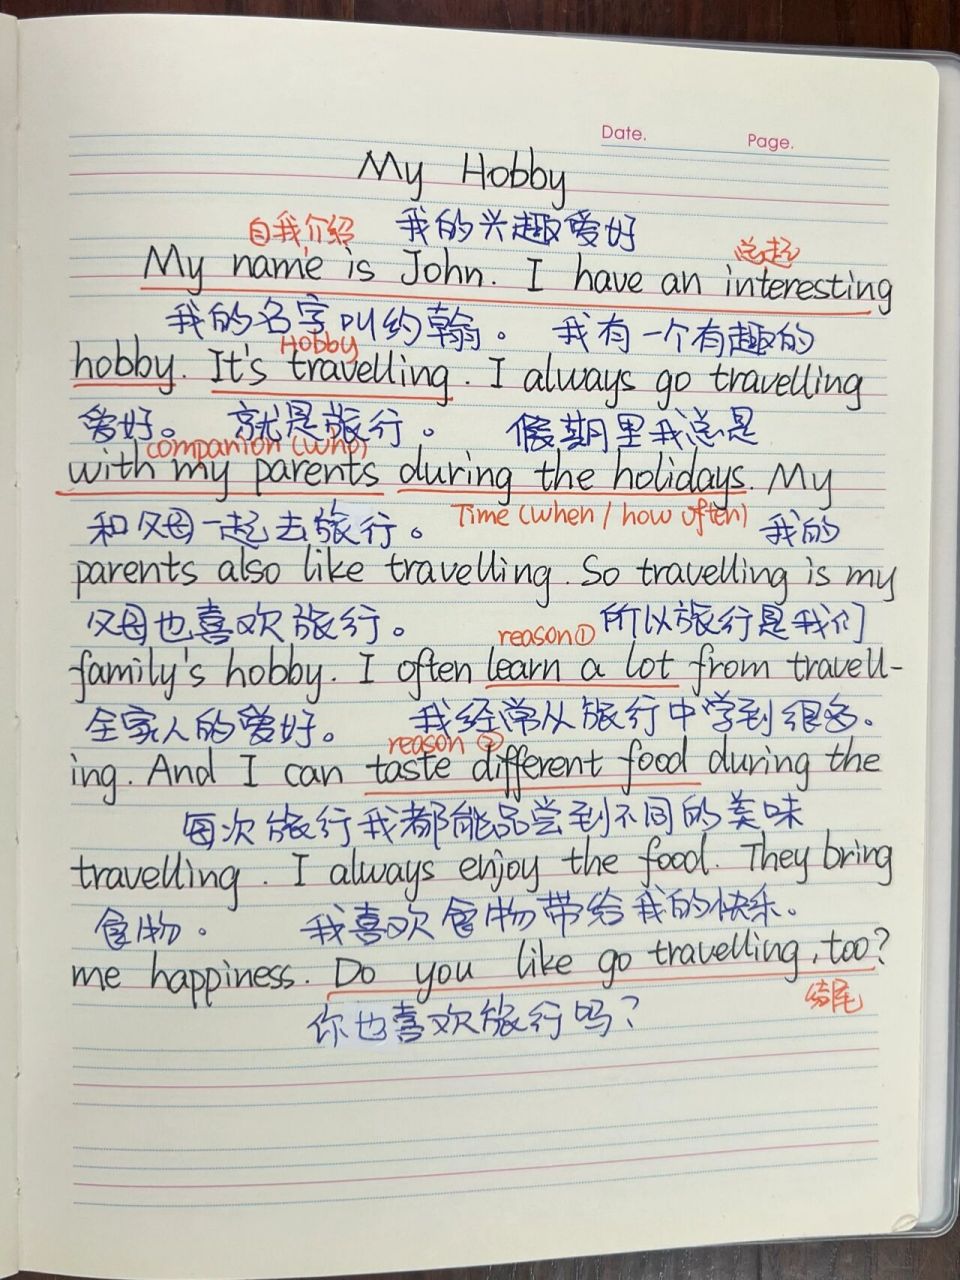 Date. Page.
My Hobby
自我介绍 我的兴趣爱好 总起
My name is John. I have an interesting
我的名字叫约翰。 我有一个有趣的
Hobby
hobby. It's travelling. I always go travelling
爱好。 就是旅行。 假期里我总是
companion (who)
with my parents during the holidays. My
和父母一起去旅行。 Time (when / how often) 我的
parents also like travelling. So travelling is my
父母也喜欢旅行。 所以旅行是我们
reason①
family's hobby. I often learn a lot from travell-
全家人的爱好。 我经常从旅行中学到很多。
reason ②
ing. And I can taste different food during the
每次旅行我都能品尝到不同的美味
travelling. I always enjoy the food. They bring
食物。 我喜欢食物带给我的快乐。
me happiness. Do you like go travelling, too?
你也喜欢旅行吗? 结尾